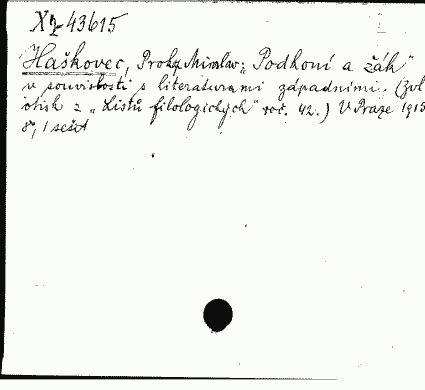 X 2-43615
Haškovec, Prokop Miroslav: „Podkoní a žák"
v souvislosti s literaturami západními. (Zvl.
otisk z „Listů filologických" roč. 42.) V Praze 1915
8°, 1 sešit